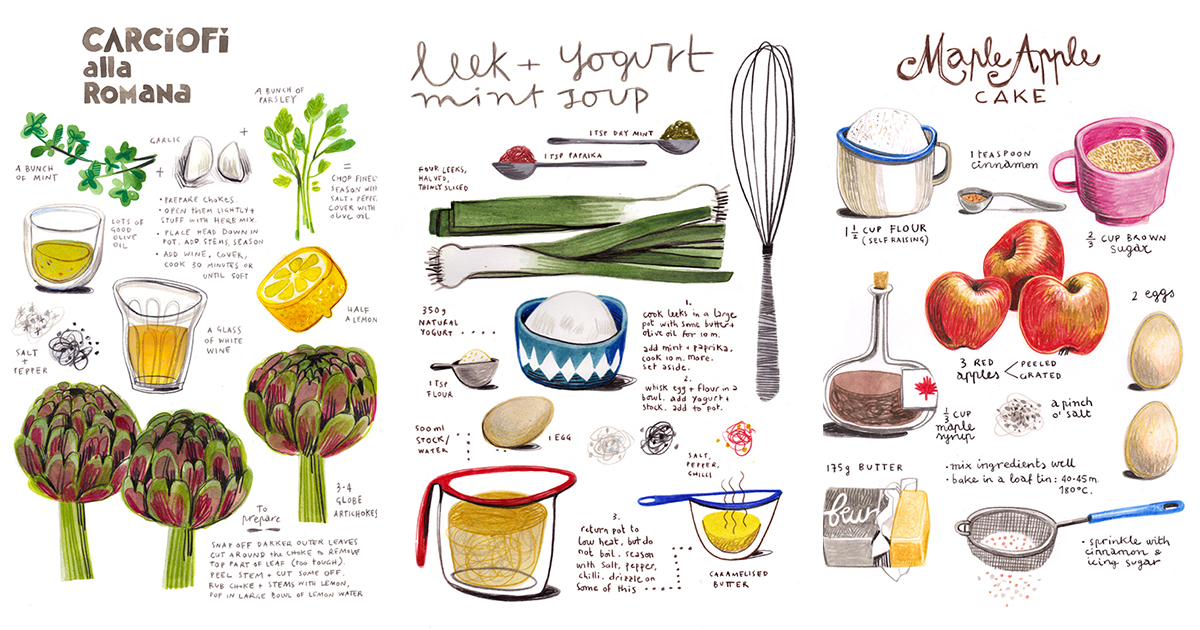 CARCiOFi
alla
ROMANA
A BUNCH OF
PARSLEY
GARLIC
+
A BUNCH
OF MINT
+
=
CHOP FINELY
SEASON WITH
SALT + PEPPER
COVER WITH
OLIVE OIL
• PREPARE CHOKES.
• OPEN THEM LIGHTLY +
STUFF WITH HERB MIX.
• PLACE HEAD DOWN IN
POT. ADD STEMS, SEASON
• ADD WINE, COVER,
COOK 30 MINUTES OR
UNTIL SOFT
LOTS OF
GOOD
OLIVE
OIL
HALF
A LEMON
A GLASS
OF WHITE
WINE
SALT
+
PEPPER
3-4
GLOBE
ARTICHOKES
To
prepare
SNAP OFF DARKER OUTER LEAVES
CUT AROUND the CHOKE to REMOVE
TOP PART OF LEAF (TOO TOUGH).
PEEL STEM + CUT SOME OFF.
RUB CHOKE + STEMS WITH LEMON,
POP IN LARGE BOWL OF LEMON WATER
leek + yogurt
mint soup
1 TSP DRY MINT
1 TSP PAPRIKA
FOUR LEEKS,
HALVED,
THINLY SLICED
350g
NATURAL
YOGURT
1 TSP
FLOUR
1 EGG
500ml
STOCK/
WATER
1.
cook leeks in a large
pot with some butter +
olive oil for 10 m.
add mint + paprika,
cook 10 m. more.
set aside.
2.
whisk egg + flour in a
bowl. add yogurt +
stock. add to pot.
SALT,
PEPPER,
CHILLI
3.
return pot to
low heat, but do
not boil. season
with salt, pepper,
chilli. drizzle on
some of this
CARAMELISED
BUTTER
Maple Apple
CAKE
1 TEASPOON
cinnamon
1 1/2 CUP FLOUR
(SELF RAISING)
2/3 CUP BROWN
sugar
2 eggs
3 RED
apples
PEELED
GRATED
1/3 CUP
maple
syrup
a pinch
o' salt
175g BUTTER
• mix ingredients well
• bake in a loaf tin: 40-45m.
180°C.
• sprinkle with
cinnamon &
icing sugar